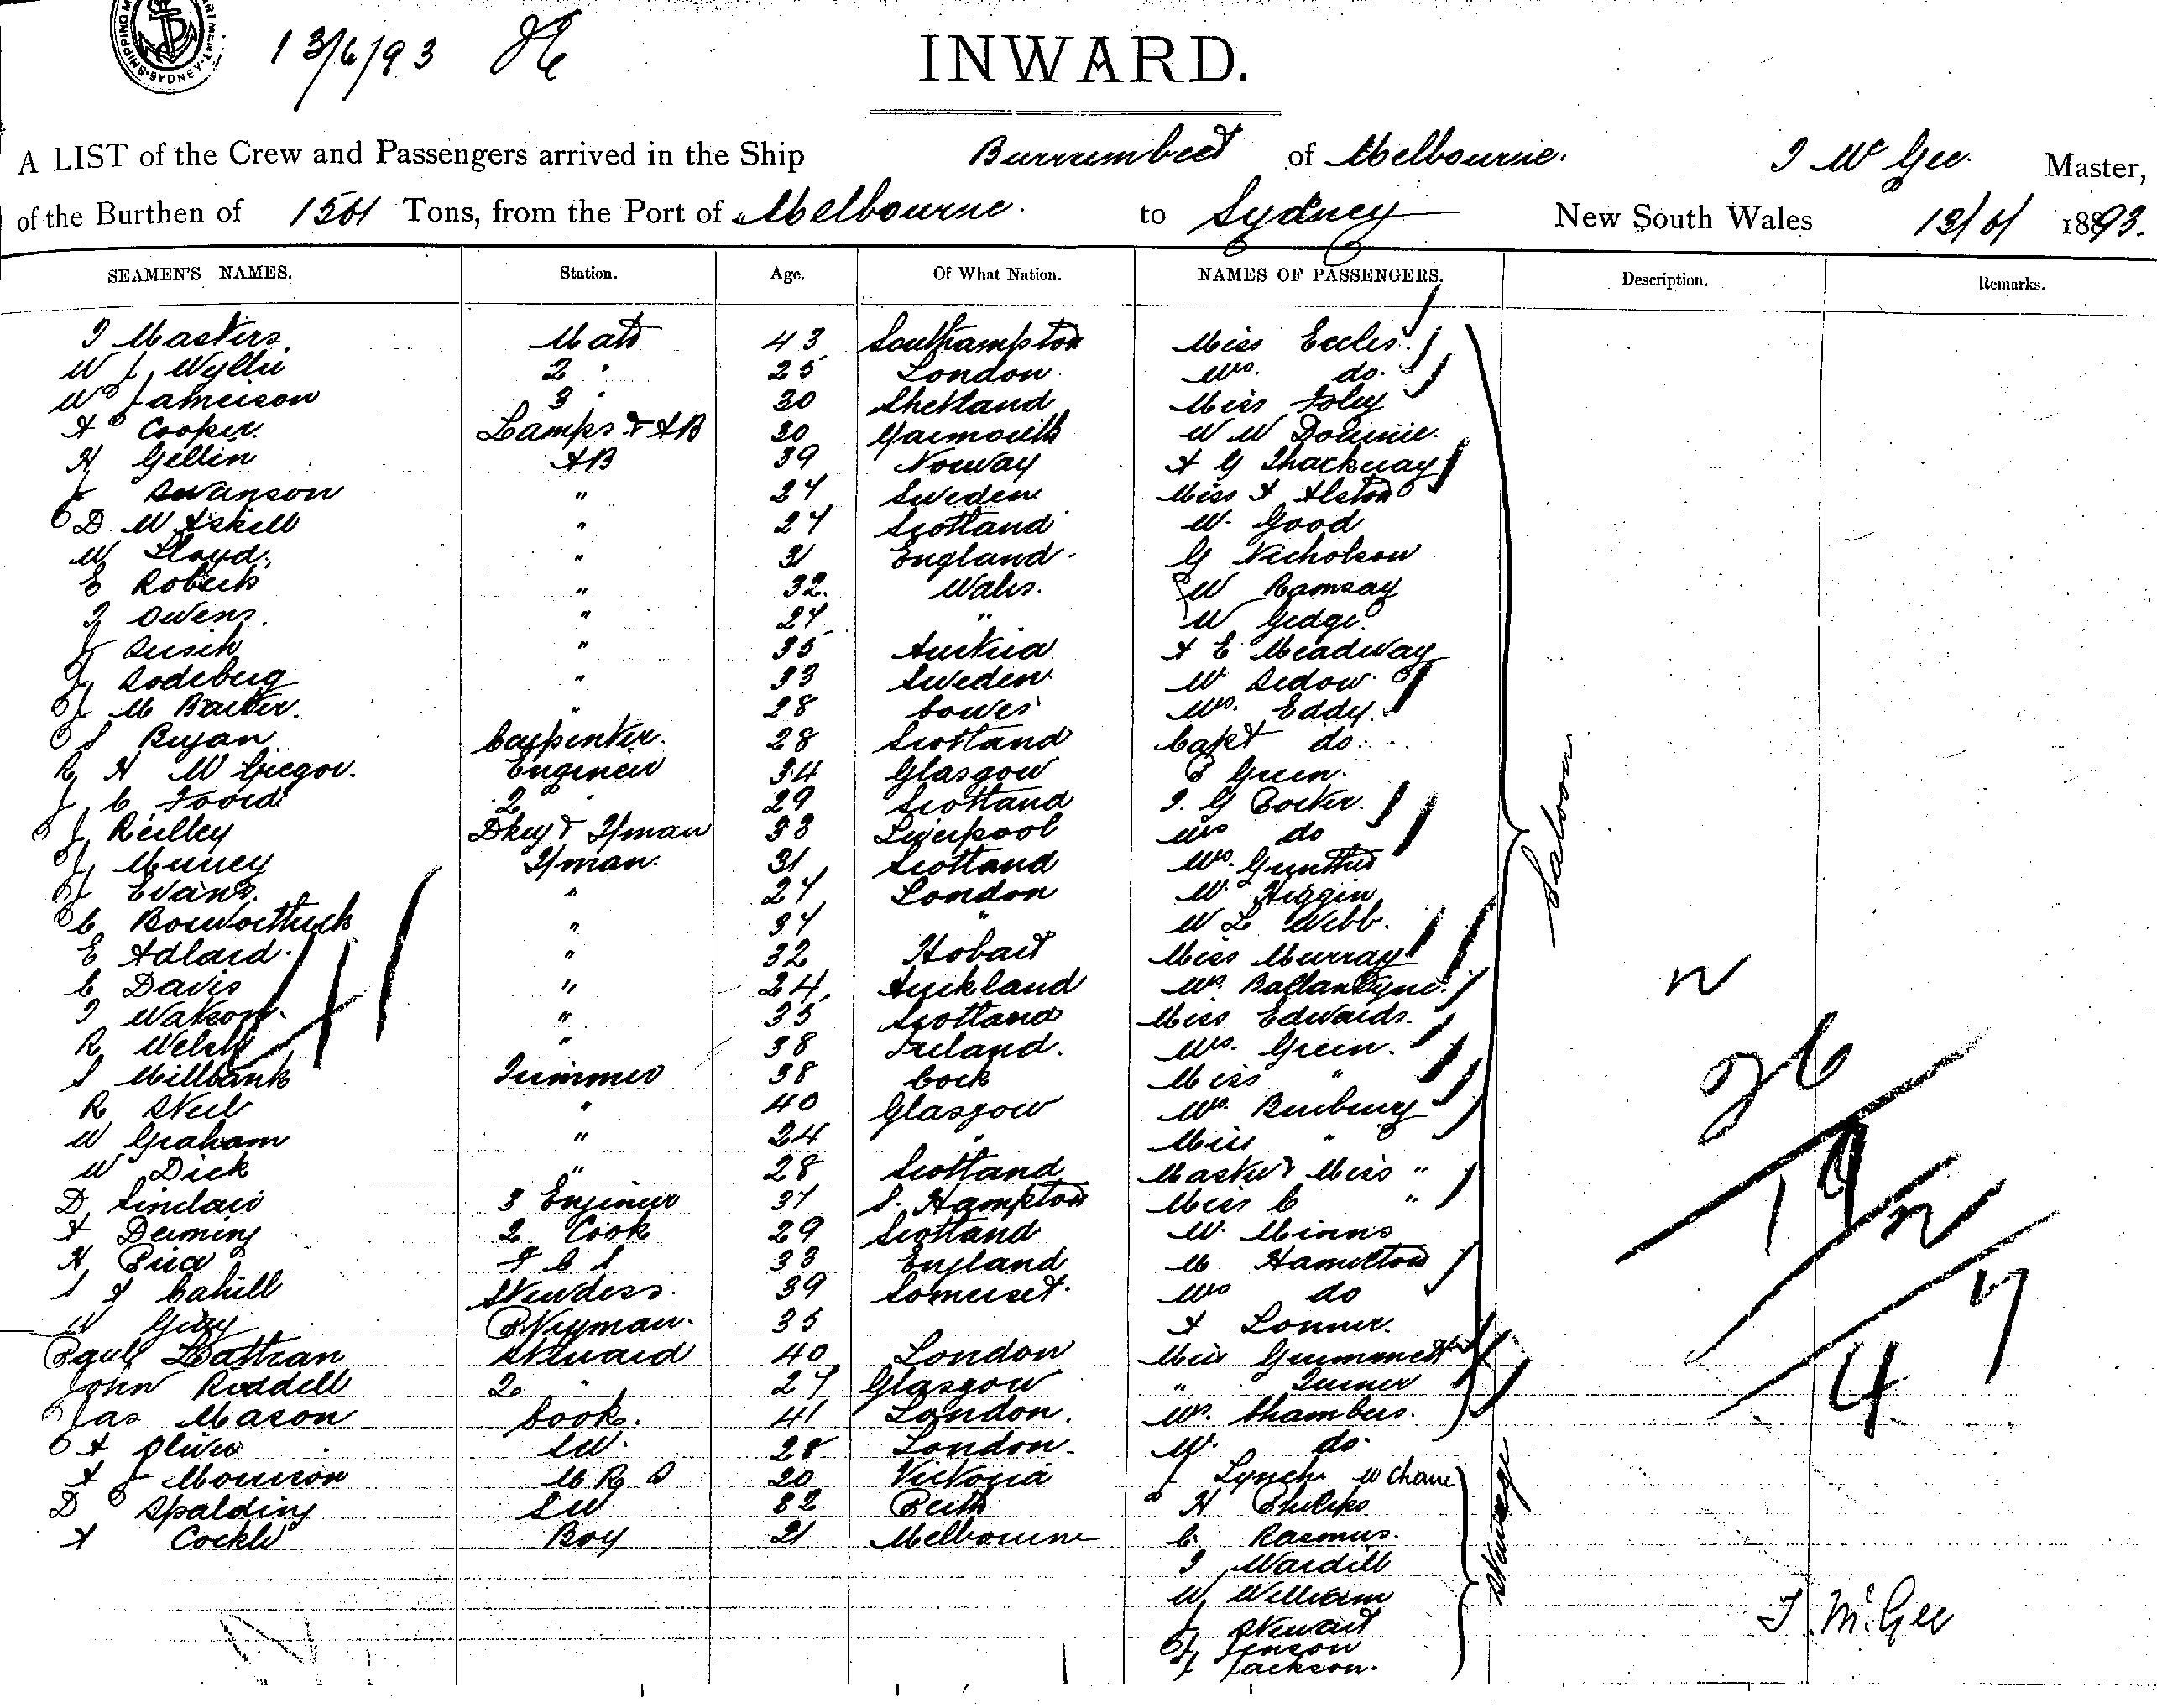 SHIPPING SYDNEY
13/6/93
INWARD.
A LIST of the Crew and Passengers arrived in the Ship Burrumbeet of Melbourne. T McGee Master,
of the Burthen of Tons, from the Port of Melbourne. to Sydney New South Wales 13/6/ 1893.
SEAMEN'S NAMES. Station. Age. Of What Nation. NAMES OF PASSENGERS. Description. Remarks.
T Masters Mate 43 Southampton Miss Eccles
W J Wyllie 2 " 25 London Mrs. do.
W Jameison 3 " 30 Shetland Miss Foley
A Cooper. Lamps & AB 30 Yarmouth W W Downie.
H Gellin AB 39 Norway A G Thackeray
J Swanson " 27 Sweden Miss A Alston
D McAskill " 27 Scotland Mr. Good
W Lloyd. " 31 England. G Nicholson
E Roberts " 32. Wales. W Ramsay
T Owens. " 27 " W Gedge.
J " 35 Austria A E Meadway
J Sodeberg " 33 Sweden Mr Sedow.
J M Barker. " 28 Cowes Mrs. Eddy.
S Bryan Carpenter. 28 Scotland Capt do.
R H McGregor. Engineer 34 Glasgow Green.
J C Foord 2 " 29 Scotland T. G Cocker.
J Reilley Dkey & F/man 33 Liverpool Mrs do
J Murrey F/man. 31 Scotland Mrs. Gunther
J Evans. " 27 London Mr. Higgin
C " 37 " W L Webb.
E Adlard. " 32 Hobart Miss Murray
C Davis " 24 Auckland Mrs. Ballantyne.
T Watson. " 35 Scotland Miss Edwards.
R Welsh " 38 Ireland. Mrs. Green.
S Millbank Trimmer 38 Cork Miss "
R Steel " 40 Glasgow Mrs. Burbury
W Graham " 24 " Miss "
W Dick " 28 Scotland Master & Miss "
D Sinclair 3 Engineer 37 S. Hampton Miss C "
A Deming 2 Cook 29 Scotland Mr. Minns
H Price F C S 33 England M Hamilton
S A Cahill Stewdess. 39 Somerset. Mrs do
W Gray P/tryman. 35 A Lonner.
Paul Lattran Steward 40 London Miss Grimmett
John Riddell 2 " 27 Glasgow " Turner
Jas Mason Cook. 41 London. Mrs. Chambers.
A Oliver SW. 28 London. Mr. do.
A J Morrison M R S 20 Victoria J Lynch W Chane
D Spalding SW 32 Perth H Philips
A Cockle Boy 21 Melbourne C. Rasmus.
T Wardill
W William
J Stewart
J Jenson
J Jackson.
Saloon
Steerage
26
19
2
47
T. McGee